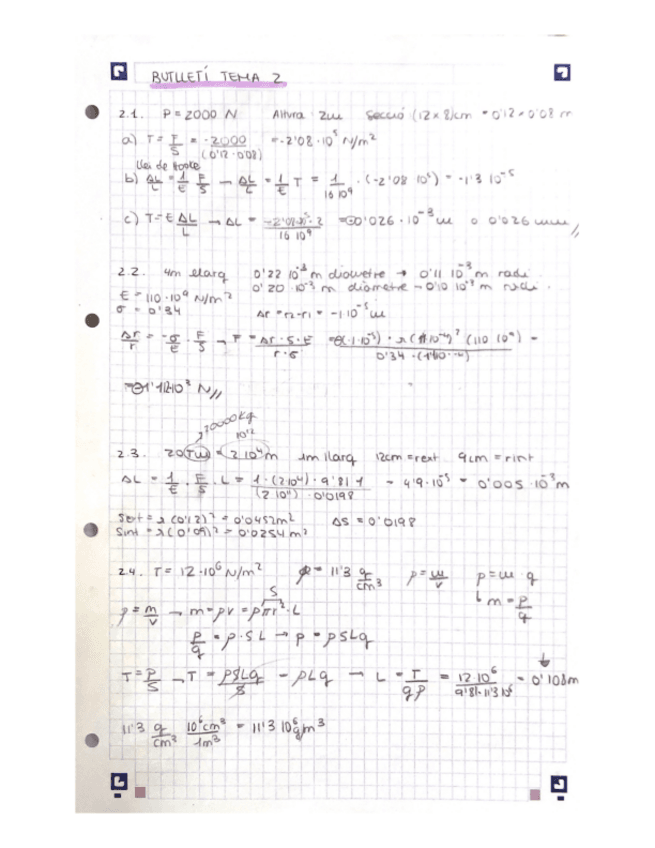 BUTLLETÍ TEMA 2
2.1. P = 2000 N Altura 2m Secció (12 x 8)cm = 0'12 x 0'08 m
a) T = F/S = -2000/(0'12·0'08) = -2'08·10⁵ N/m²
Llei de Hooke
b) ΔL/L = 1/E F/S → ΔL/L = 1/E T = 1/16 10⁹ · (-2'08 10⁵) = -1'3 10⁻⁵
c) T = E ΔL/L → ΔL = -2'08·10⁵·2/16 10⁹ = -0'026·10⁻³ m o 0'026 mm //
2.2. 4m llarg 0'22 10⁻³ m diàmetre → 0'11 10⁻³ m radi.
0'20·10⁻³ m diàmetre → 0'10 10⁻³ m radi.
E = 110·10⁹ N/m²
σ = 0'34 Δr = r2-r1 = -1·10⁻⁵ m
Δr/r = -σ/E · F/S → F = Δr·S·E/r·σ
N //
2000kg
10¹²
2.3. 20 = 2 10⁴ m 1m llarg 12cm = rext 9cm = rint
ΔL = 1/E · F/S · L = 1·(2 10⁴)·9'81·1/(2 10¹¹)·0'0198 = 4'9·10⁻⁵ = 0'005·10⁻³ m
Sext = π(0'12)² = 0'0452m² ΔS = 0'0198
Sint = π(0'09)² = 0'0254 m²
2.4. T = 12·10⁶ N/m² ρ = 11'3 g/cm³ ρ = m/v p = m·g
m = p/g
S
ρ = m/v → m = ρv = ρπr²·L
p/g = ρ·S L → p = ρSLg
T = P/S → T = ρSLg/S = ρLg → L = T/gρ = 12 10⁶/9'81·11'3 10⁶ = 0'108m
11'3 g/cm³ 10⁶cm³/1m³ = 11'3 10⁶ g/m³